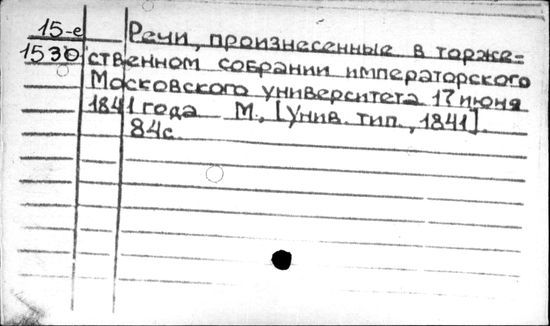 15-е
1530
Речи, произнесенные в торже=
ственном собрании императорского
Московского университета 17 июня
1841 года М., [Унив. тип., 1841].
84с.